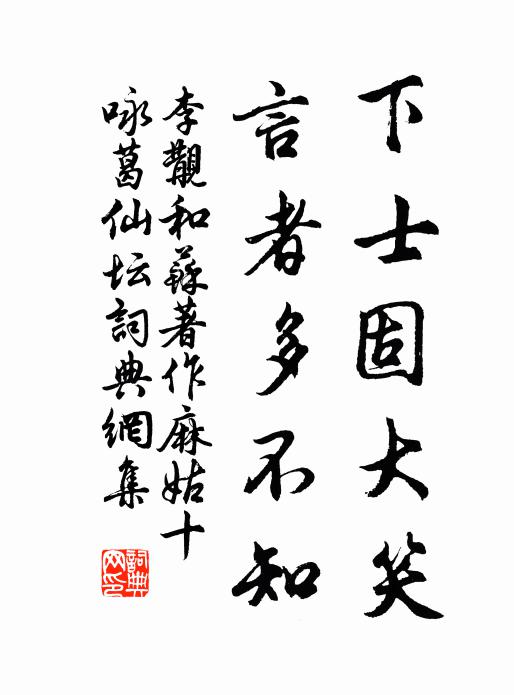 下士固大笑
言者多不知
李覯和蘇著作麻姑十
咏葛仙坛詞典網集
詞典網印